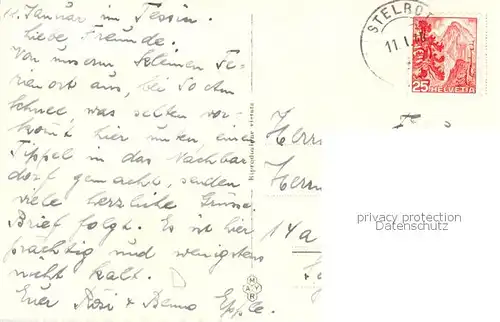 11. Januar im Tessin.
Liebe Freunde.
Von unserm kleinen Fe-
rienort aus, bei 50 cm
Schnee, was selten vor-
kommt hier unten, einen
Tippel in das Nachbar
dorf gemacht, senden
viele herzliche Grüsse
Brief folgt. Es ist hier
prächtig und wenigstens
nicht kalt.
Euer Rösi + Benno Epple.
Riproduzione vietata
MAYR
STELBO
11.I.
25 HELVETIA
Herrn
Herm
14a
privacy protection
Datenschutz